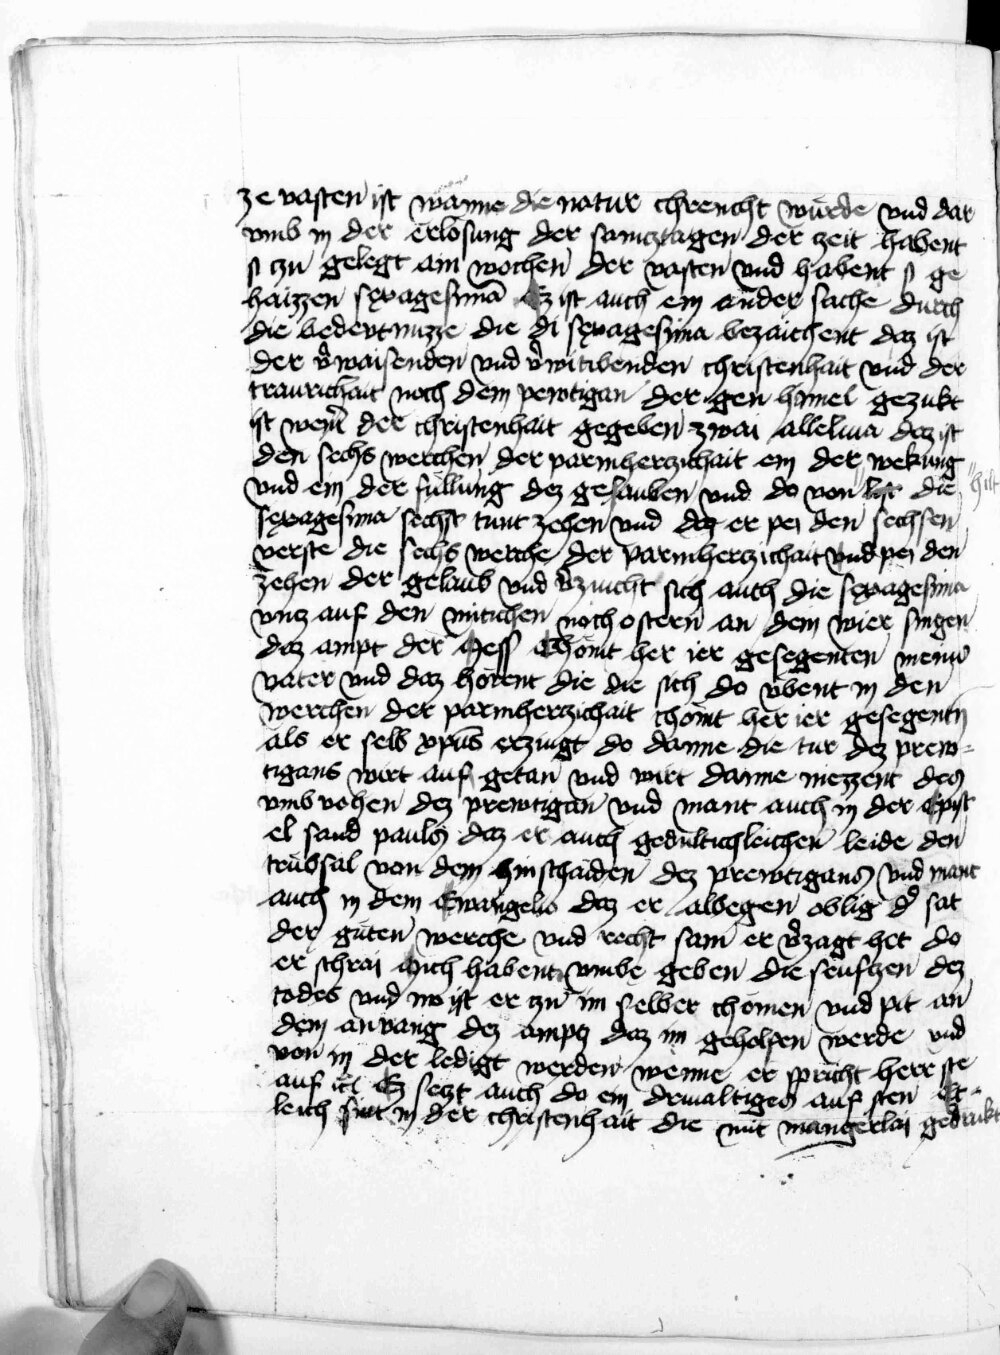 ze vasten ist wanne die natur chrencht wurde vnd dar
vmb in der erlosung der samcztagen der zeit habent
si czu gelegt ain wochen der vasten vnd habent si ge
haizzen sexagesima Ez ist auch ein ander sache durch
die bedevtnuzze die di sexagesima bezaichent daz ist
der v̾waisenden vnd v̾witibenden christenhait vnd der
traurichait noch dem prewtigan der gen himel gezukt
ist der christenhait gegeben zwai alleluia daz ist
den sechs werchen der parmherczichait ein der wekung
vnd ein der fullung dez gelauben vnd do von die
sexagesima sechst tunt zehen vnd daz er pei den sechsen
verste die sechs werche der parmherczichait vnd pei den
zehen der gelaub vnd v̾zuicht sich auch die sexagesima
vntz auf den mitichen noch ostern an dem wier singen
daz ampt der Mess Chomt her ier gesegenten meins
vater vnd daz horent die die sich do vbent in den
werchen der parmherczichait chomt her ier gesegentn
als er selb xpus erzaigt do danne die tur dez prew-
tigans wirt auf getan vnd wirt danne niezzent des
vmbvohen dez prewtigan vnd mant auch in der Epist
el sand pauls daz er auch gedultichleichen leide den
trubsal von dem hinschaiden dez prewtigans vnd mant
auch in dem Ewangelio daz er albegen oblig d̾ sat
der guten werche vnd recht sam er v̾zagt het do
er schrai Mich habent vmbe geben die seufczen dez
todes vnd nv ist er czu im selber chomen vnd pit an
dem anvang dez ampcz daz im geholfen werde vnd
von in der ledigt werden wenne er spricht herr ste
auf Ez seczt auch do ein drivaltiges auf sten
leich sint in der christenhait die mit mangerlai gedrukt